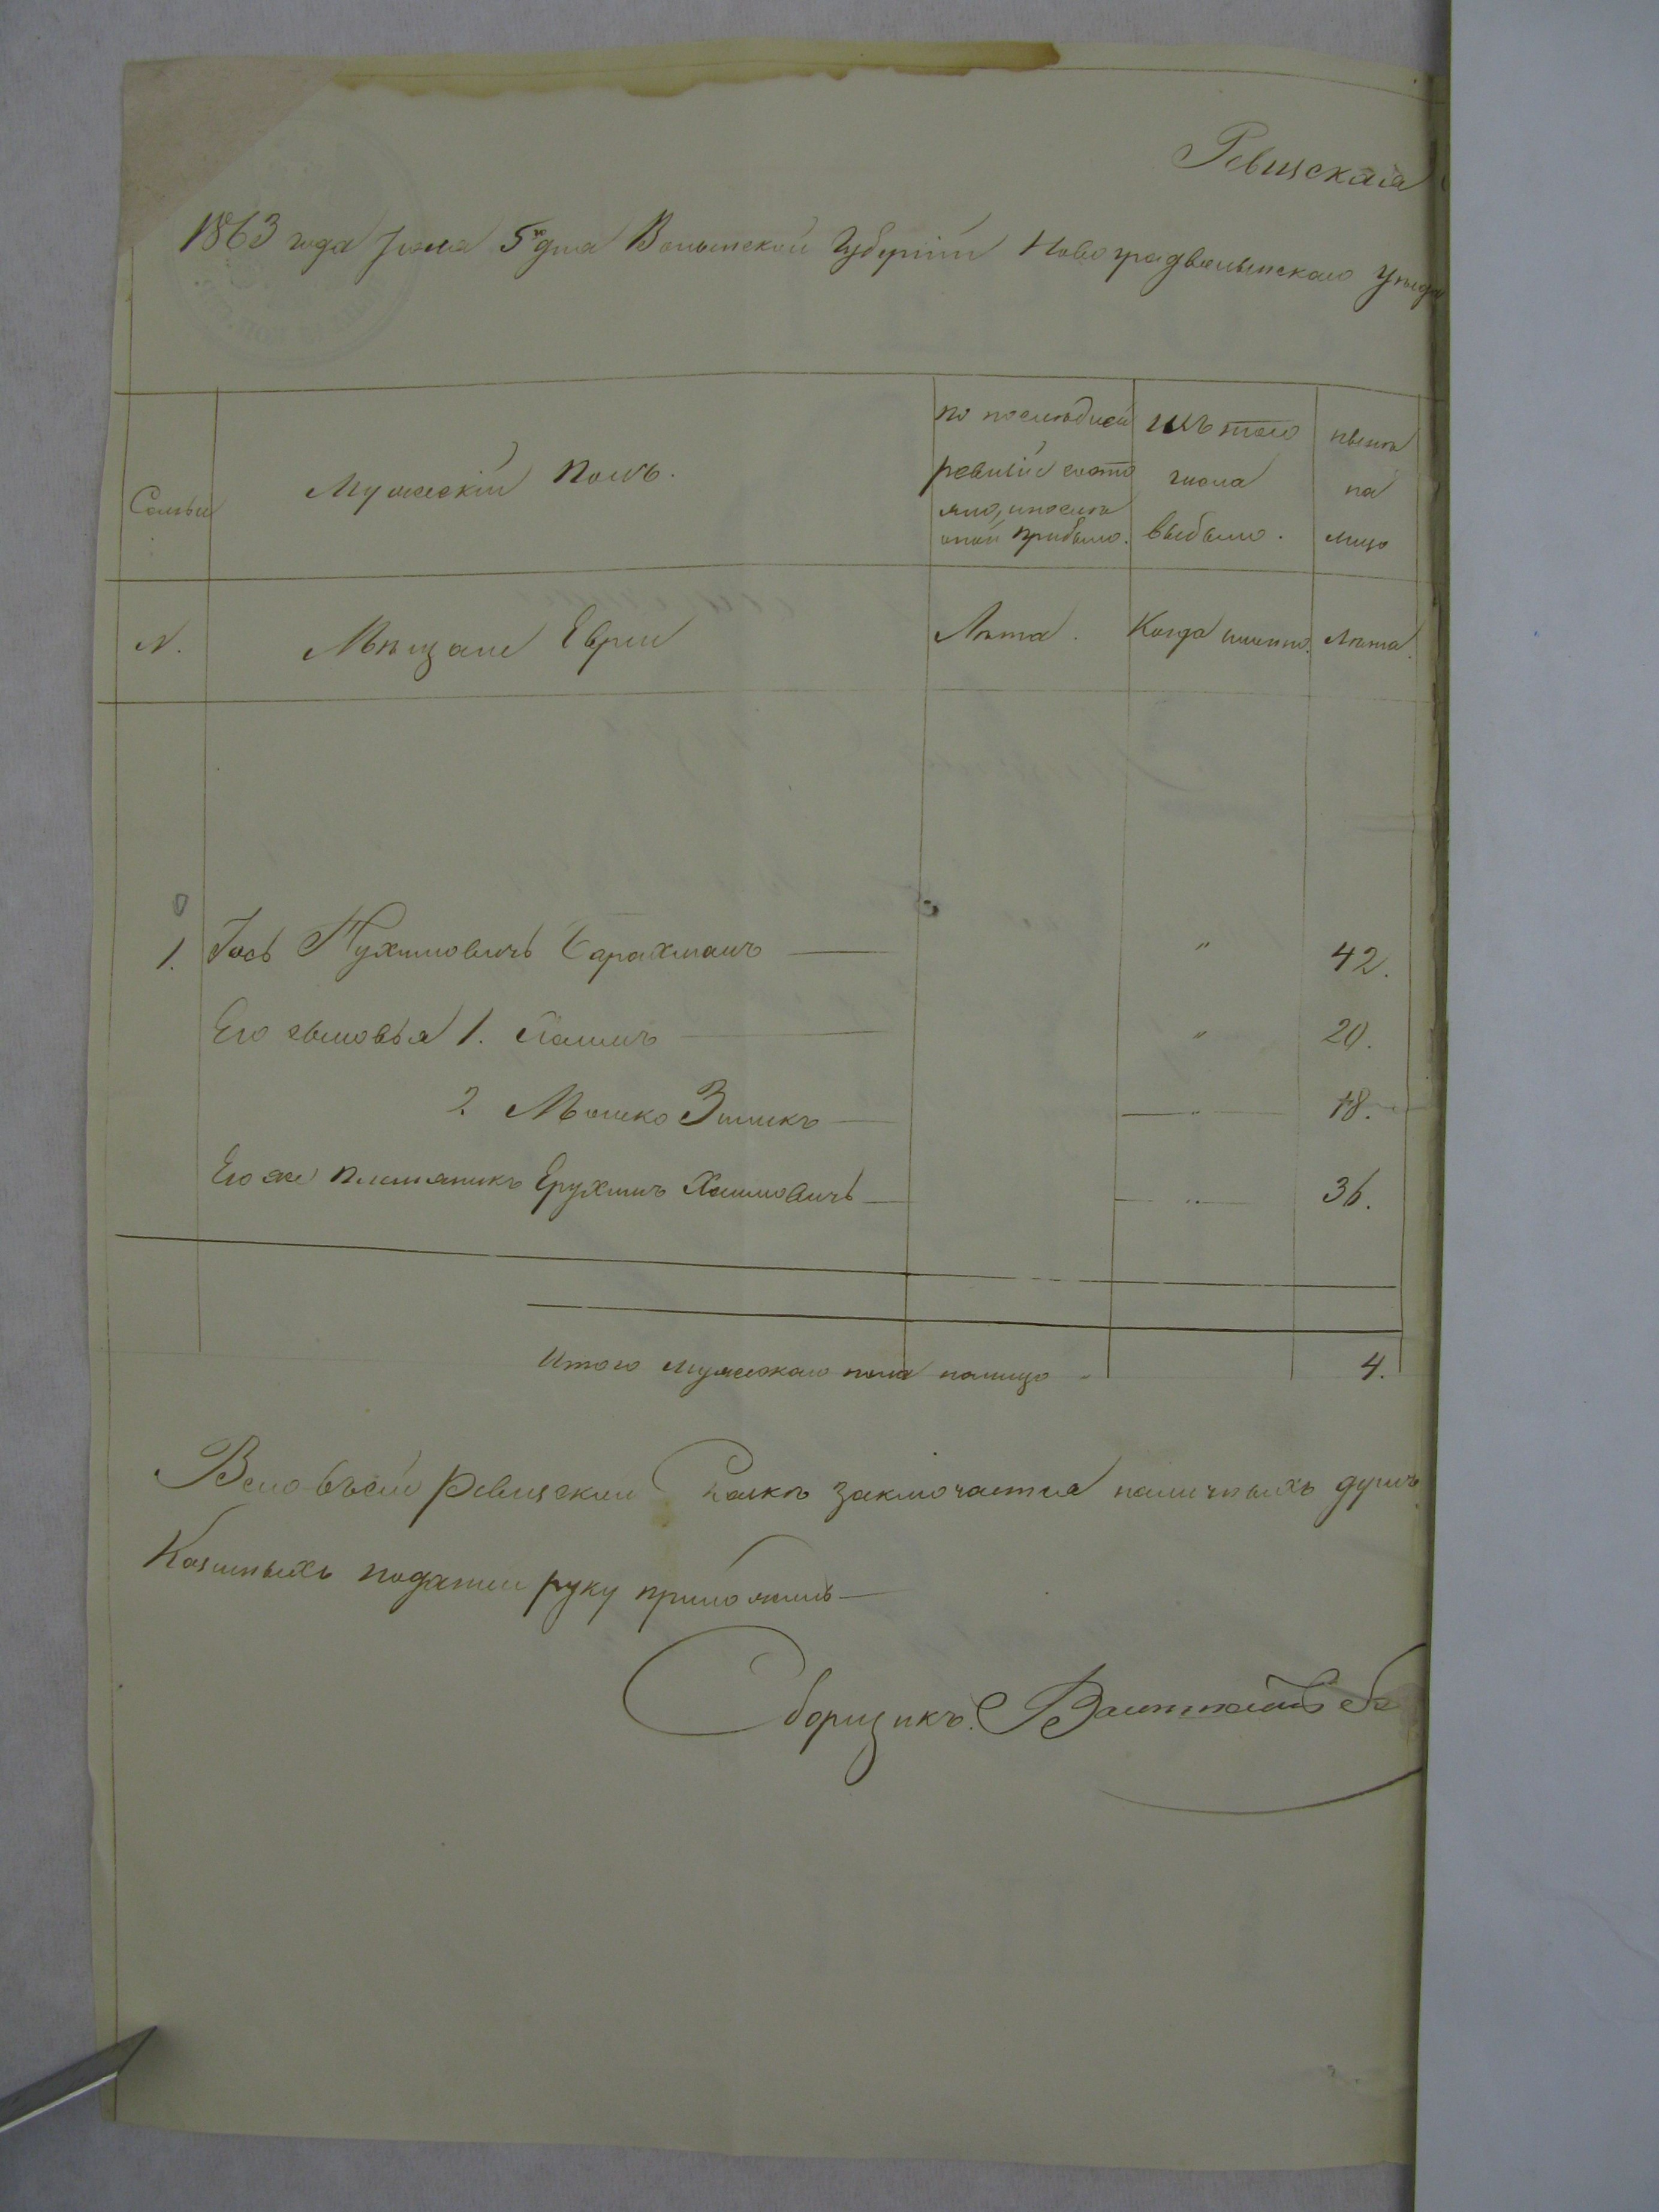 Ревизская
1863 года Июня 5го дня Волынской Губерніи Новоградволынскаго Уѣзда
Семьи
Мужескій Полъ.
по послѣдней
ревизіи состо
яло, и послѣ
оной прибыло.
Изъ того
числа
выбыло.
нынѣ
на
лицо
N.
Мѣщане Евреи
Лѣта.
Когда именно.
Лѣта.
1. Іось Нухимовичь Барахманъ — " 42.
Его сыновья 1. — " 20.
2. Мошко Зи — " 18.
Его же племяникъ Ерухимъ Хаимовичь — " 36.
Итого мужескаго пола налицо 4.
Въ сей ревизской Сказкѣ заключается наличныхъ душъ
Казенныхъ податей руку приложилъ —
Сборщикъ